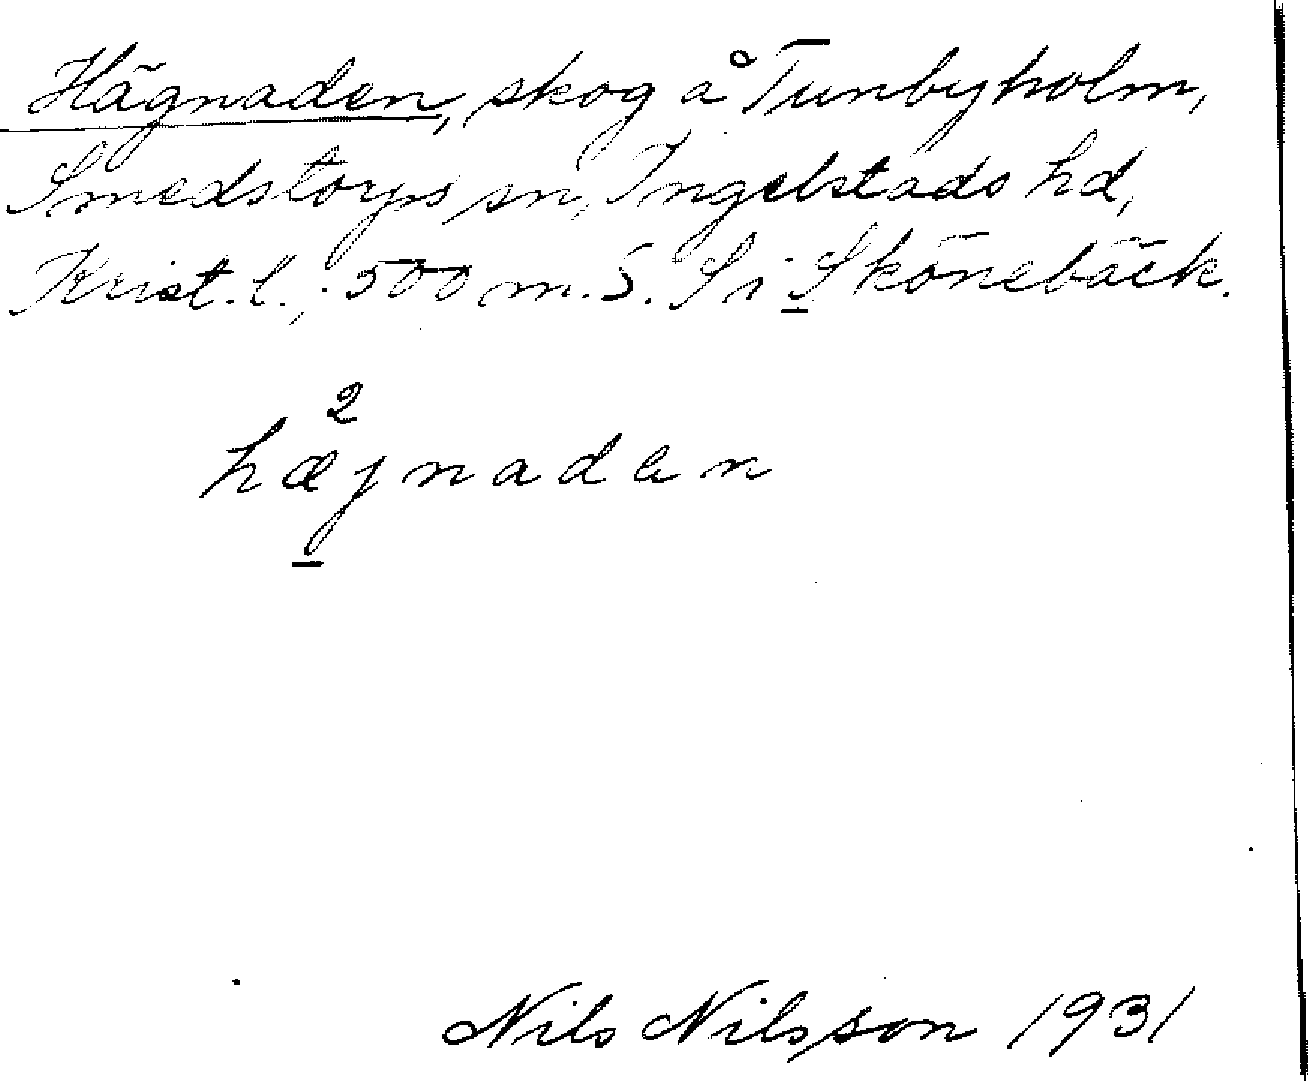 Hägnaden, skog å Tunbyholm,
Smedstorps sn, Ingelstads hd,
Krist. l., 500 m. S. S i Skönebäck.
hæ²jnaden
Nils Nilsson 1931